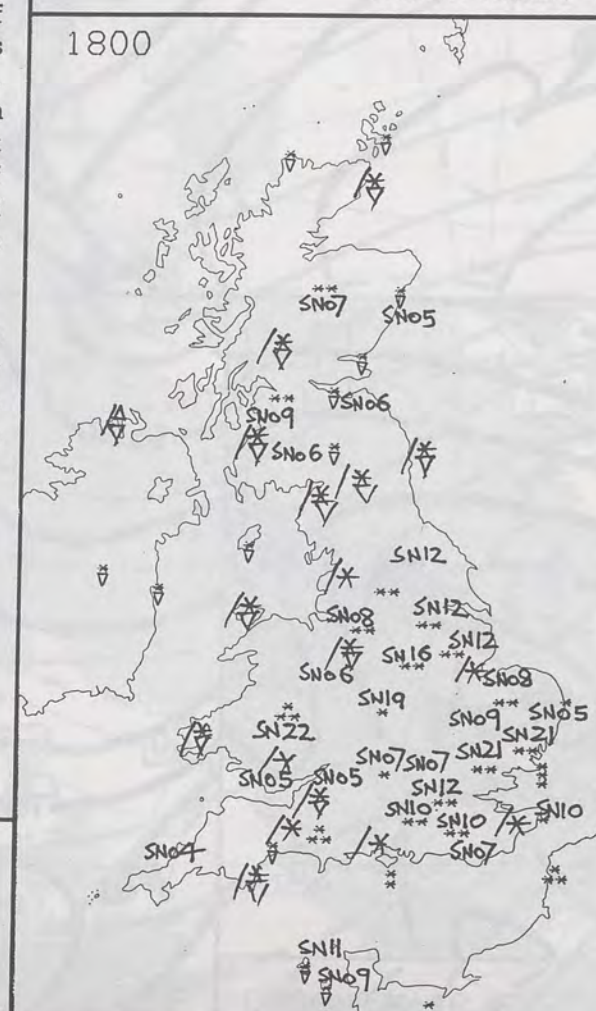 1800
SN07
SN05
SN09
SN06
SN06
SN12
SN08
SN12
SN12
SN06
SN16
SN08
SN19
SN09
SN05
SN22
SN21
SN07
SN07
SN21
SN05
SN05
SN12
SN10
SN10
SN10
SN04
SN07
SN11
SN09